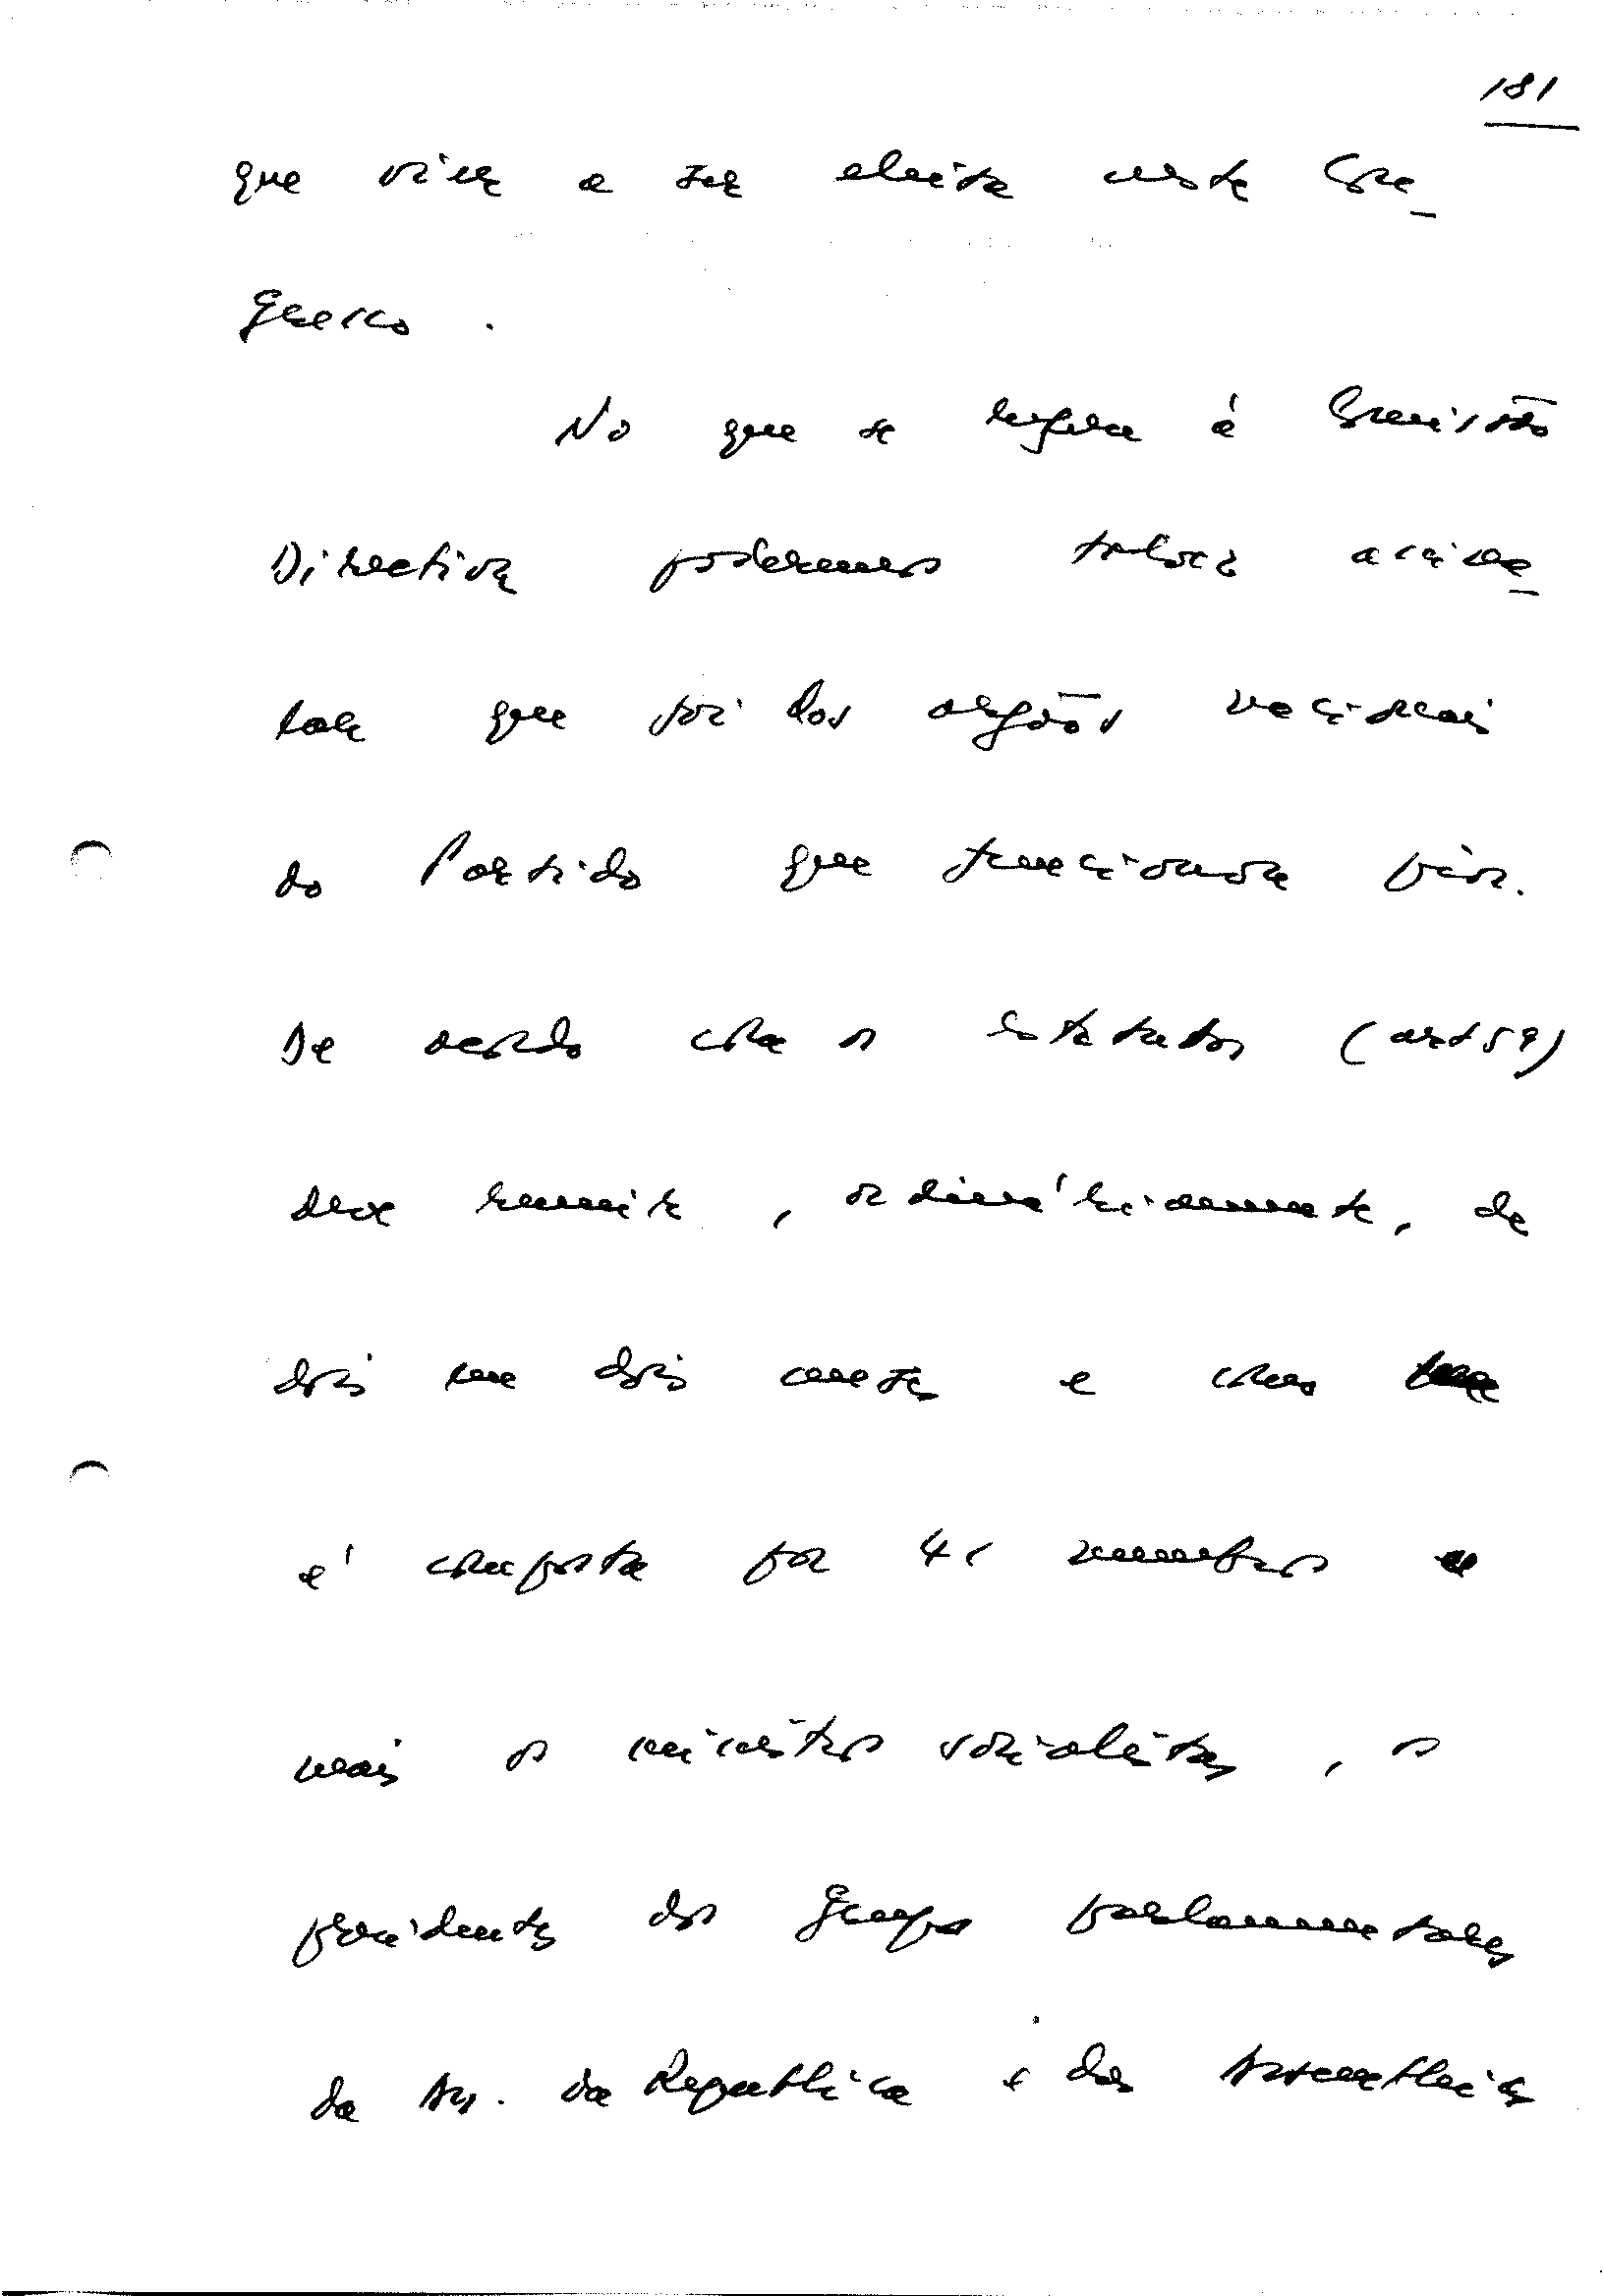 181
que vier a ser eleita neste Con-
gresso.
No que se refere à Comissão
Directiva poderemos talvez acres-
tar que foi dos orgãos nacionais
do Partido que funcionou pior.
De acordo com os Estatutos (art 59)
deve reunir, ordináriamente, de
dois em dois meses e como
é composta por 41 membros e
mais os ministros socialistas, os
presidentes dos Grupos parlamentares
da As. da República e das Assembleias